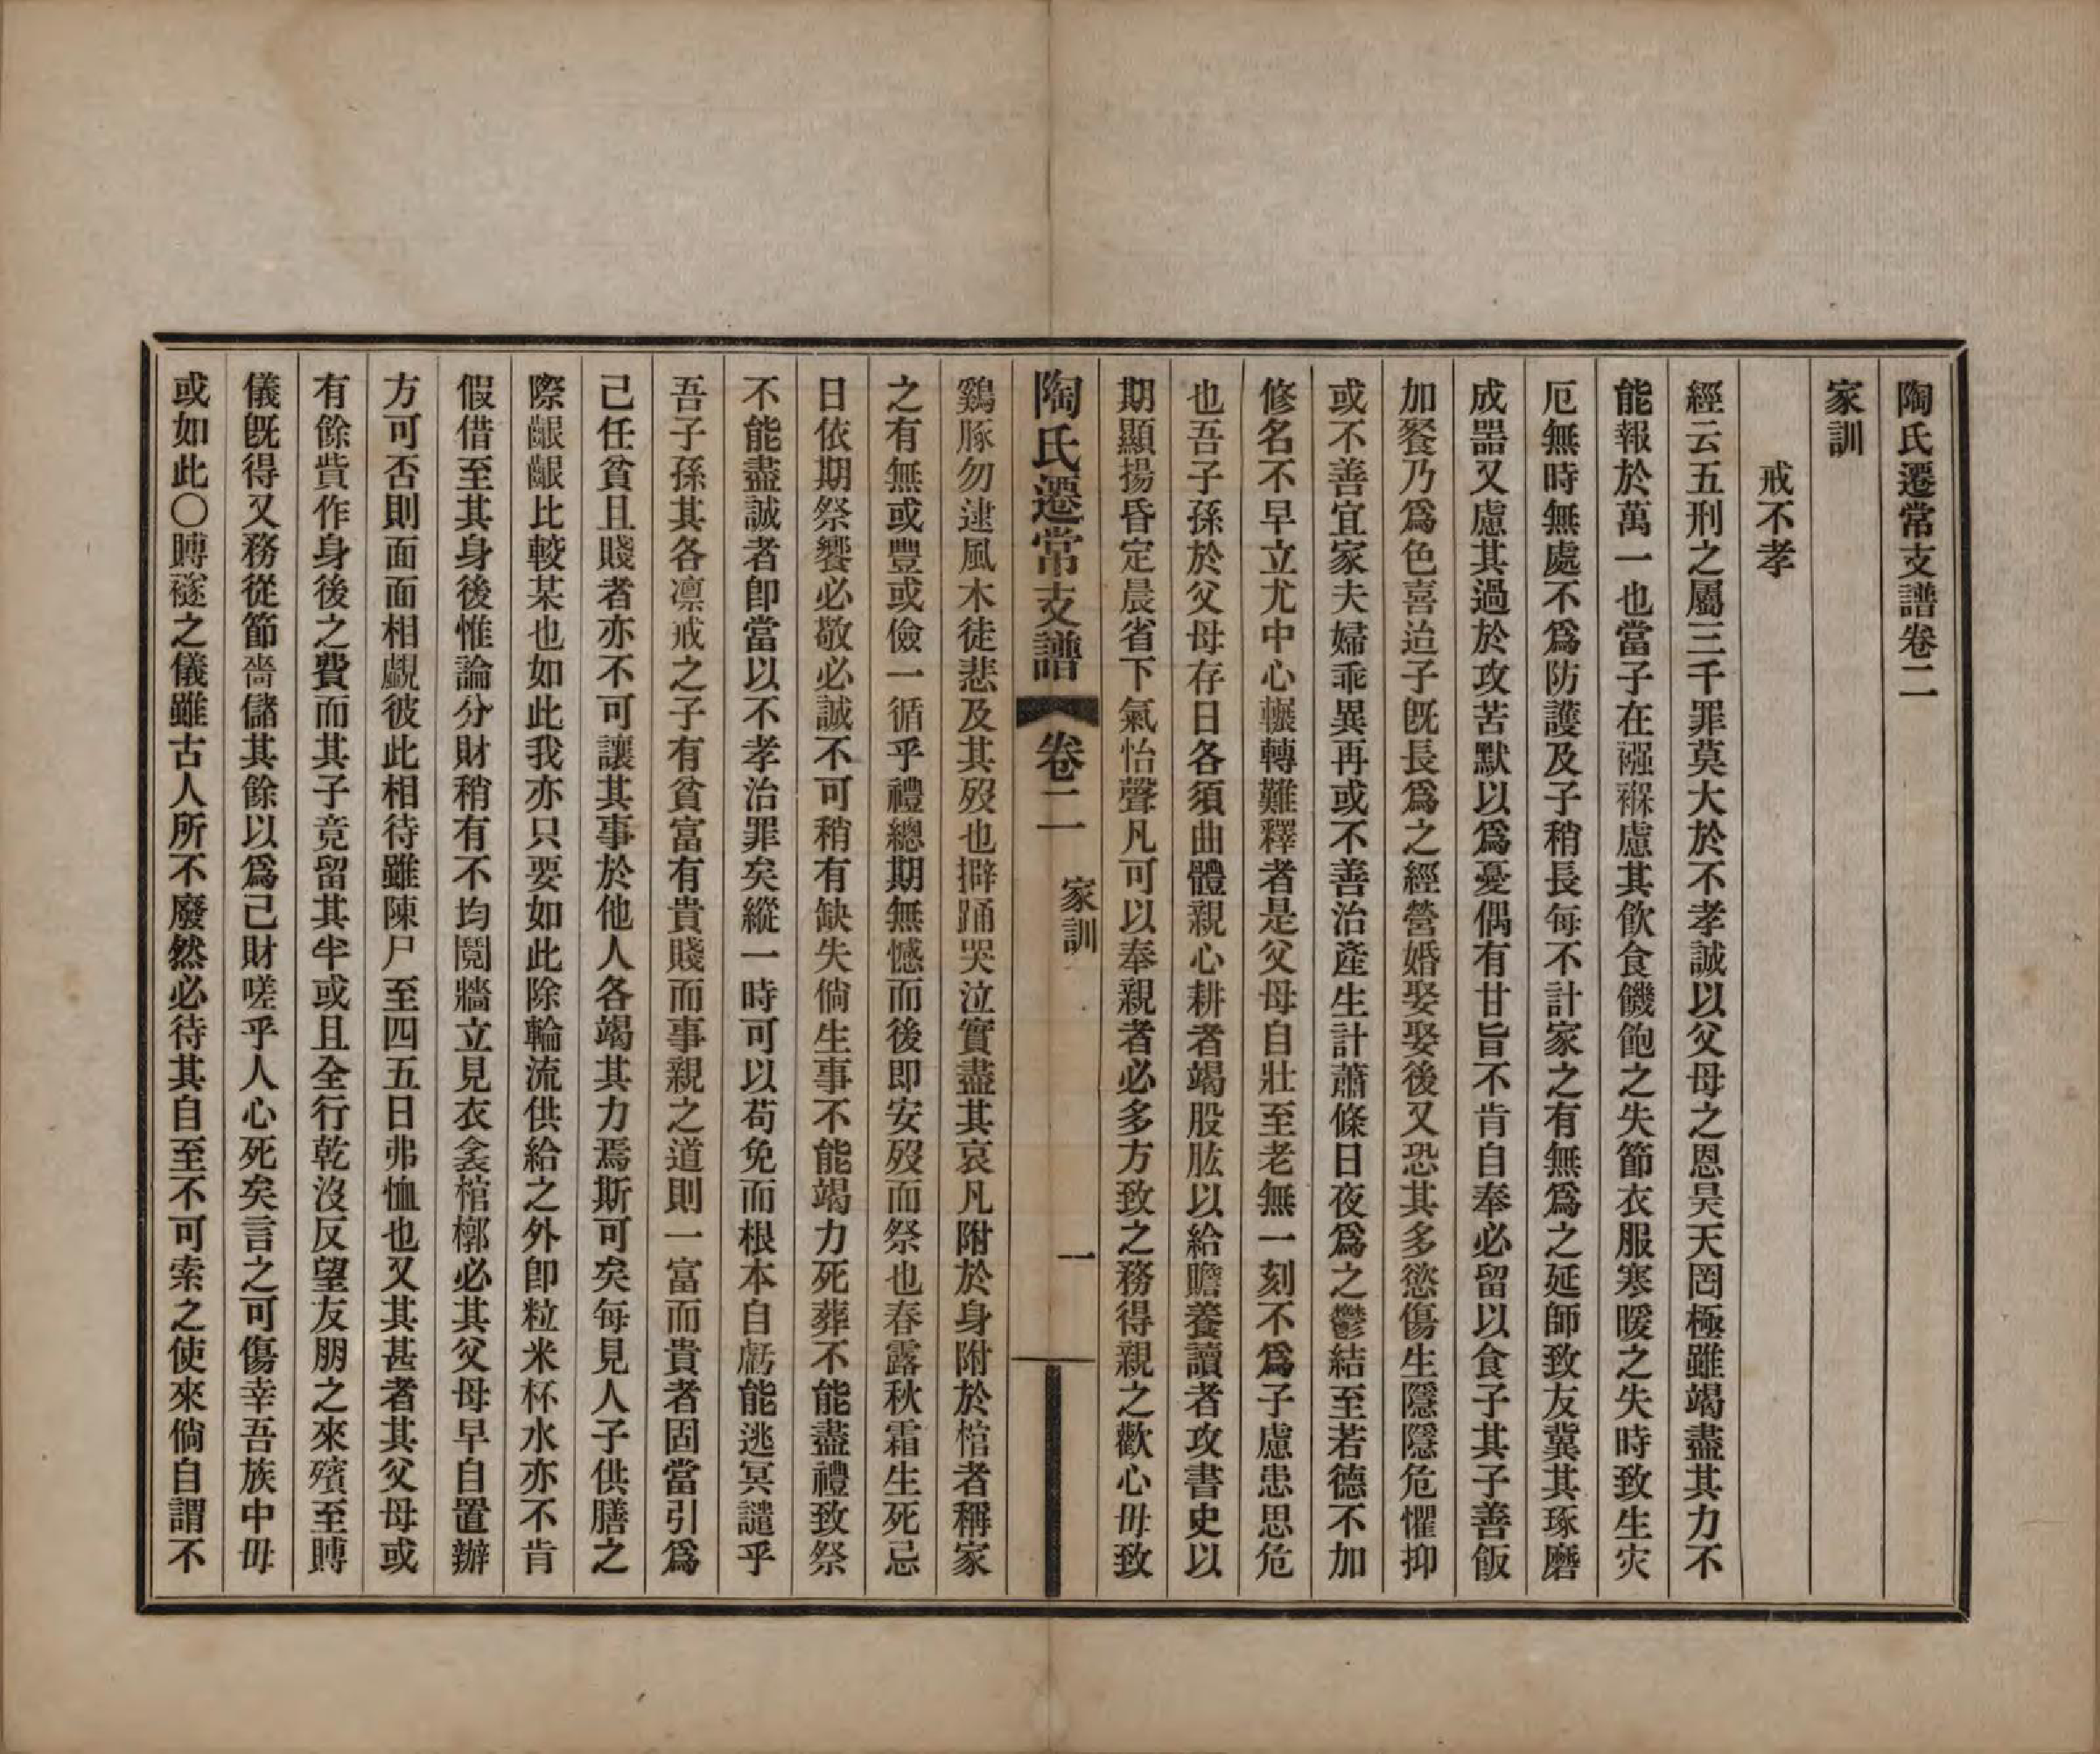 陶氏遷常支譜卷二
家訓
戒不孝
經云五刑之屬三千罪莫大於不孝誠以父母之恩昊天罔極雖竭盡其力不
能報於萬一也當子在襁褓慮其飲食饑飽之失節衣服寒暖之失時致生灾
厄無時無處不爲防護及子稍長每不計家之有無爲之延師致友冀其琢磨
成噐又慮其過於攻苦默以爲憂偶有甘旨不肯自奉必留以食子其子善飯
加餐乃爲色喜迨子旣長爲之經營婚娶娶後又恐其多慾傷生隱隱危懼抑
或不善宜家夫婦乖異再或不善治產生計蕭條日夜爲之鬱結至若德不加
修名不早立尤中心輾轉難釋者是父母自壯至老無一刻不爲子慮患思危
也吾子孫於父母存日各須曲體親心耕者竭股肱以給贍養讀者攻書史以
期顯揚昏定晨省下氣怡聲凡可以奉親者必多方致之務得親之歡心毋致
陶氏遷常支譜 卷二 家訓 一
鷄豚勿逮風木徒悲及其歿也擗踊哭泣實盡其哀凡附於身附於棺者稱家
之有無或豐或儉一循乎禮總期無憾而後即安歿而祭也春露秋霜生死忌
日依期祭饗必敬必誠不可稍有缺失倘生事不能竭力死葬不能盡禮致祭
不能盡誠者卽當以不孝治罪矣縱一時可以苟免而根本自虧能逃冥譴乎
吾子孫其各凛戒之子有貧富有貴賤而事親之道則一富而貴者固當引爲
己任貧且賤者亦不可讓其事於他人各竭其力焉斯可矣每見人子供膳之
際齦齦比較某也如此我亦只要如此除輪流供給之外卽粒米杯水亦不肯
假借至其身後惟論分財稍有不均鬩牆立見衣衾棺槨必其父母早自置辦
方可否則面面相覷彼此相待雖陳尸至四五日弗恤也又其甚者其父母或
有餘貲作身後之費而其子竟留其半或且全行乾沒反望友朋之來殯至賻
儀旣得又務從節嗇儲其餘以爲己財嗟乎人心死矣言之可傷幸吾族中毋
或如此○賻襚之儀雖古人所不廢然必待其自至不可索之使來倘自謂不